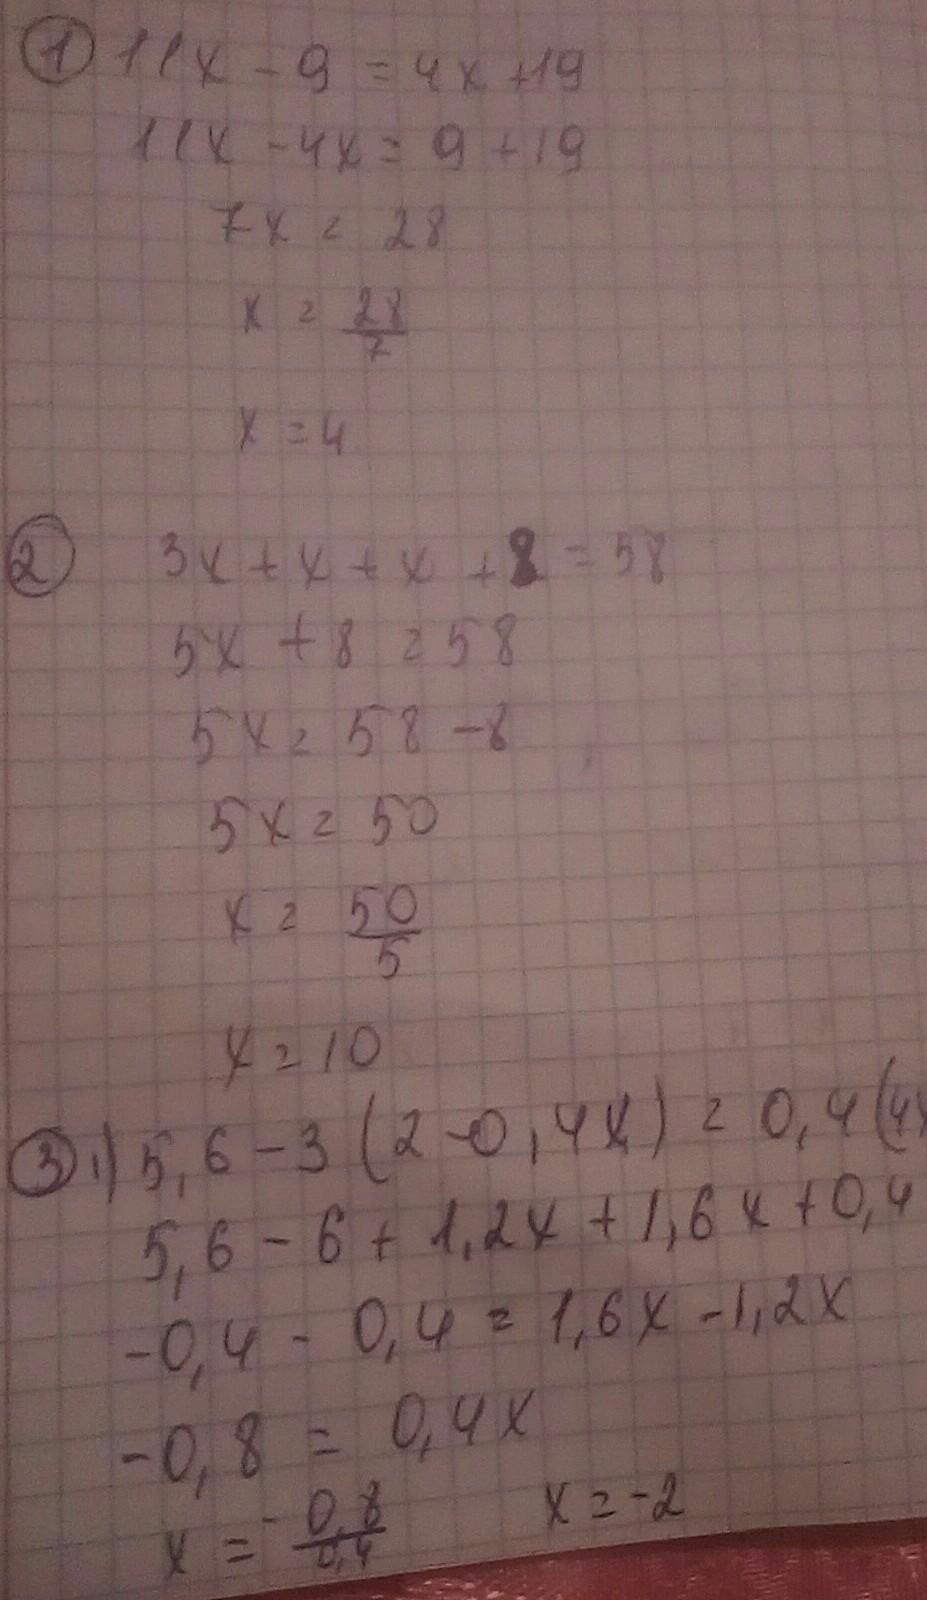 1 11x - 9 = 4x + 19
11x - 4x = 9 + 19
7x = 28
x = 28/7
x = 4
2 3x + x + x + 8 = 58
5x + 8 = 58
5x = 58 - 8
5x = 50
x = 50/5
x = 10
3 1) 5,6 - 3 (2 - 0,4x) = 0,4 (4x
5,6 - 6 + 1,2x + 1,6x + 0,4
-0,4 - 0,4 = 1,6x - 1,2x
-0,8 = 0,4x
x = - 0,8/0,4 x = -2